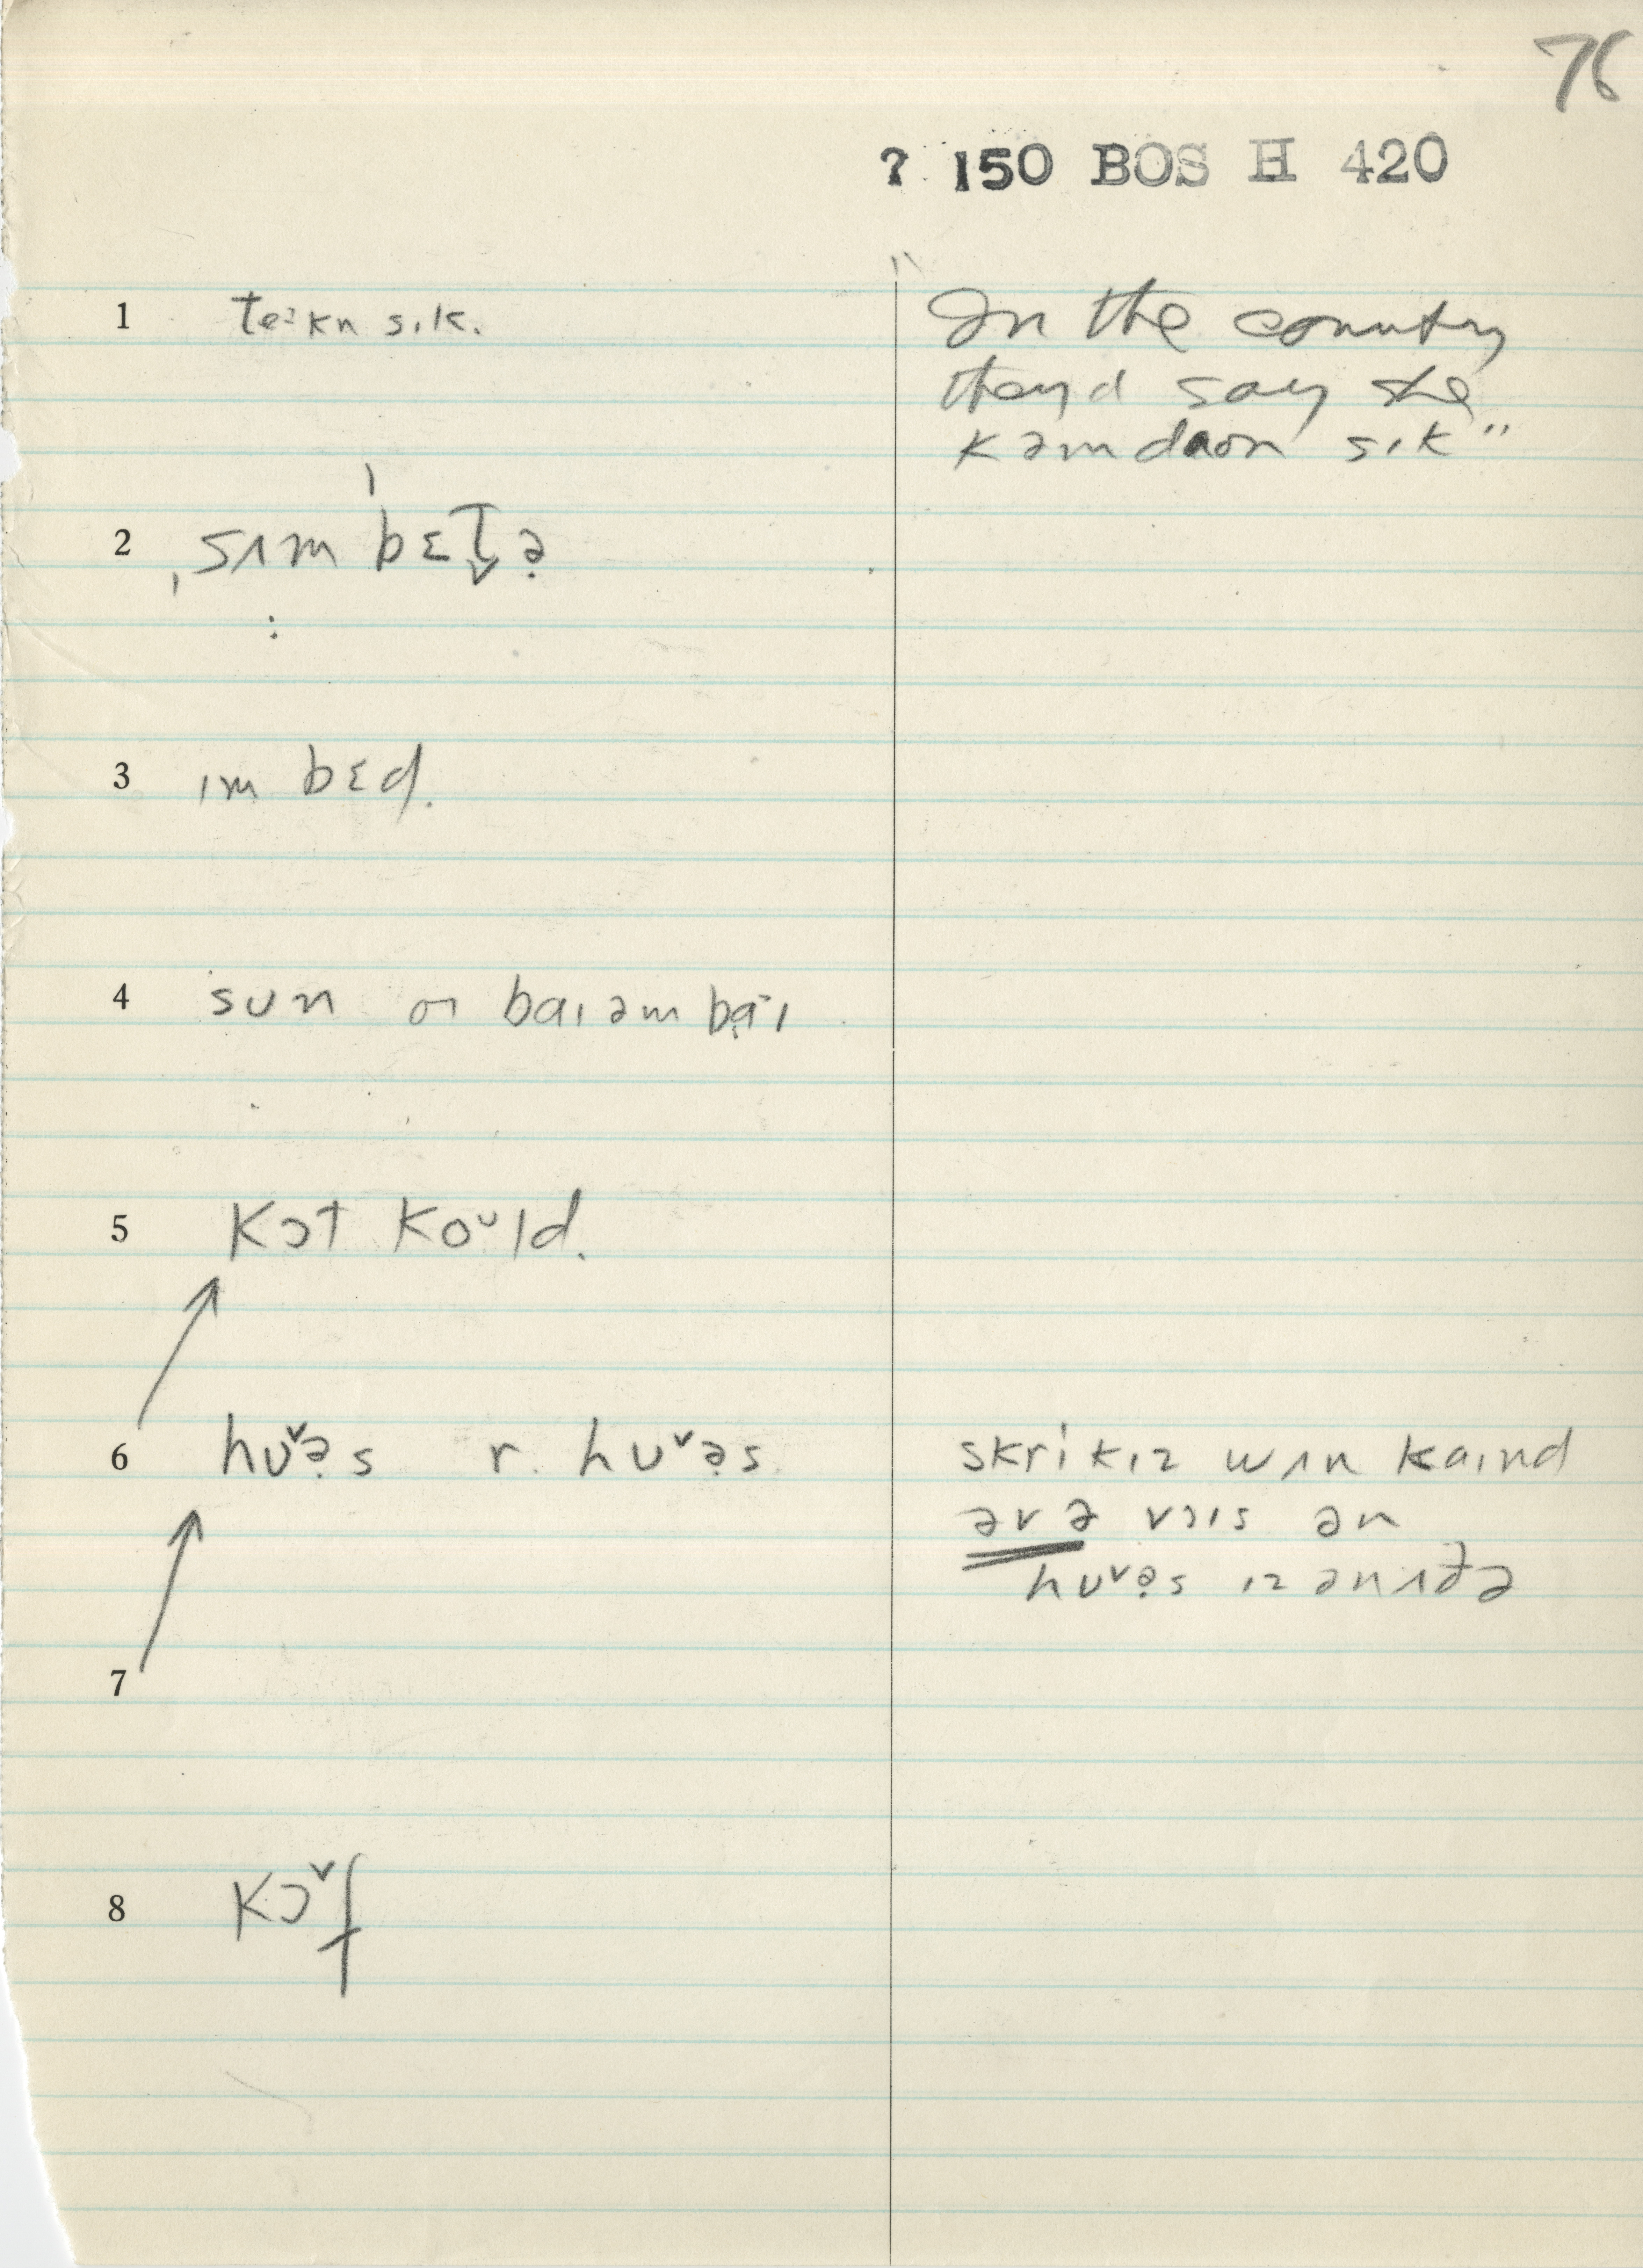 76
? 150 BOS H 420
1 teᶦkn sɪk. "In the country
they'd say he
kəm daon sɪk"
2 sʌm bɛt̬ə̣
3 ɪm bɛd.
4 sun or baɪ əm ba̤ˑɪ
5 kɔt koᶷld.
6 huᵛə̣s r. huᵛə̣s skrikɪz wʌn kaɪnd
əv ə vɔɪs ən
huᵛə̣s ɪz ənʌðə
7
8 kɔᵛf